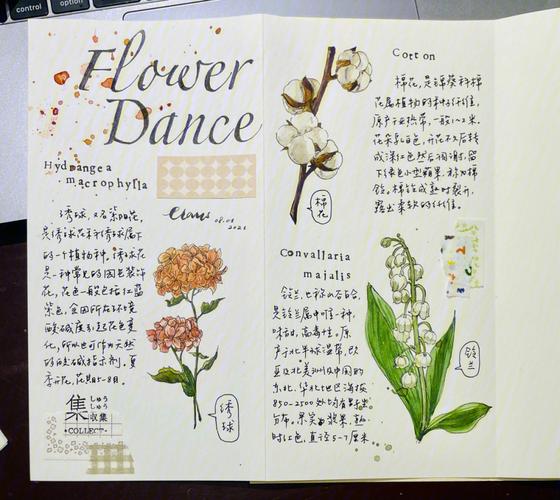 control
option
Flower
Dance
Hydrangea
macrophylla
08.01
2021
绣球，又名紫阳花，
是绣球花科绣球属下
的一个植物种，绣球花
是一种常见的园色装饰
花，花色一般包括红蓝
紫色，会因所在环境
酸碱度引起花色变
化，所以也可作为天然
的酸碱指示剂。夏
季开花，花期5-8月。
集
しゅう
しゅう
收集
·COLLECT·
绣球
Cotton
棉花，是锦葵科棉
花属植物的种籽纤维，
原产于亚热带，一般1~2米，
花朵乳白色，开花不久后转
成深红色然后凋谢，留
下绿色小型蒴果，称为棉
铃。棉铃成熟时裂开，
露出柔软的纤维。
棉花
Convallaria
majalis
铃兰，也称山谷百合，
是铃兰属中唯一种，
味甜，高毒性。原
产于北半球温带，欧
亚及北美洲及中国的
东北、华北地区海拔
850-2500处均有野生
分布。果实为浆果，熟
时红色，直径5-7厘米
铃兰